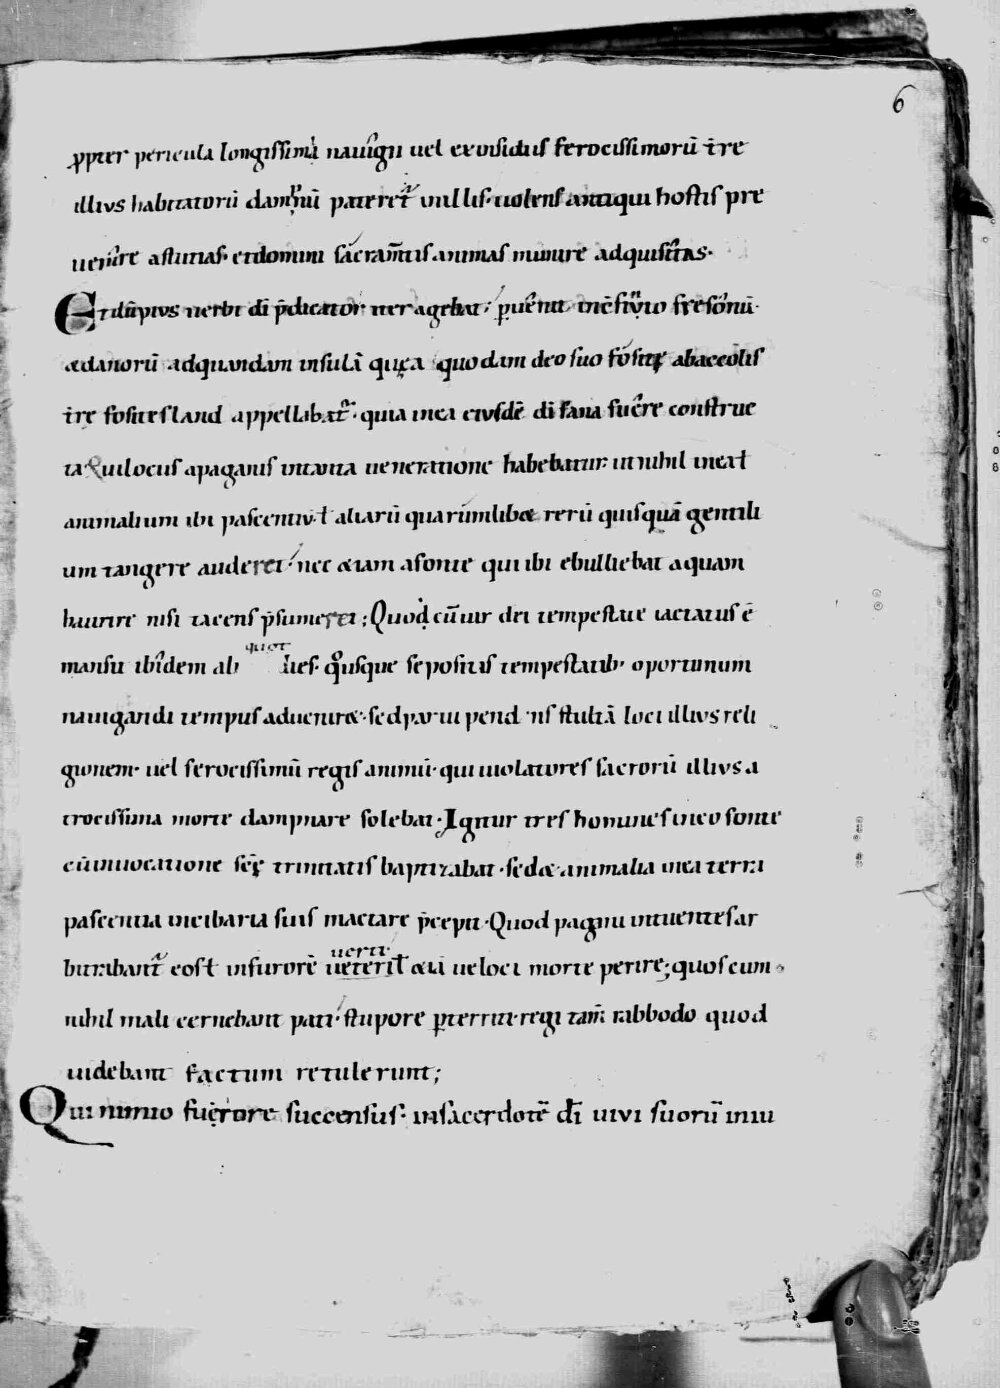 6
ꝓpter pericula longissimi nauigii uel ex uisidiis ferocissimorū t̄re
illius habitatorū dampnū pateret̄ in illis· uolens antiqui hostis pre
uenire astutias· et domini sac̄ram̄tis animas munire adquisitas·
Et dū pius uerbi dī p̄dicator iter agebat; ꝑuenit in c̄finio fresonū·
& danorū ad quandam insulā quę a quodam deo suo fosite ab accolis
t̄re fositesland appellabat̄· quia in ea eiusdē dī fana fuere construc
ta· Qui locus a paganis in tanta ueneratione habebatur· ut nihil in ea ł
animalium ibi pascentiū· ł aliarū quarumlib& rerū quisquā gentili
um tangere auderet· nec &iam a fonte qui ibi ebulliebat aquam
haurire nisi tacens p̄sumeret; Quo cū uir dei tempestate iactatus ē
mansit ibidem ali quot
dies· quousque sepositis tempestatib· oportunum
nauigandi tempus adueniret· sed parui pendens stultā loci illius reli
gionem· uel ferocissimū regis animū· qui uiolatores sacrorū illius a
trocissima morte dampnare solebat· Igitur tres homines in eo fonte
cū inuocatione scę trinitatis baptizabat· sed & animalia in ea terra
pascentia in cibaria suis mactare p̄cepit· Quod pagani intuentes ar
uerti·
bitrabant̄ eos ł in furorē ueterit ł &iā ueloci morte perire; quos cum
nihil mali cernebant pati· stupore ꝑterriti· regi tam̄ rabbodo quod
uidebant factum retulerunt;
Qui nimio furore succensus· in sacerdotē dī uiui suorū iniu